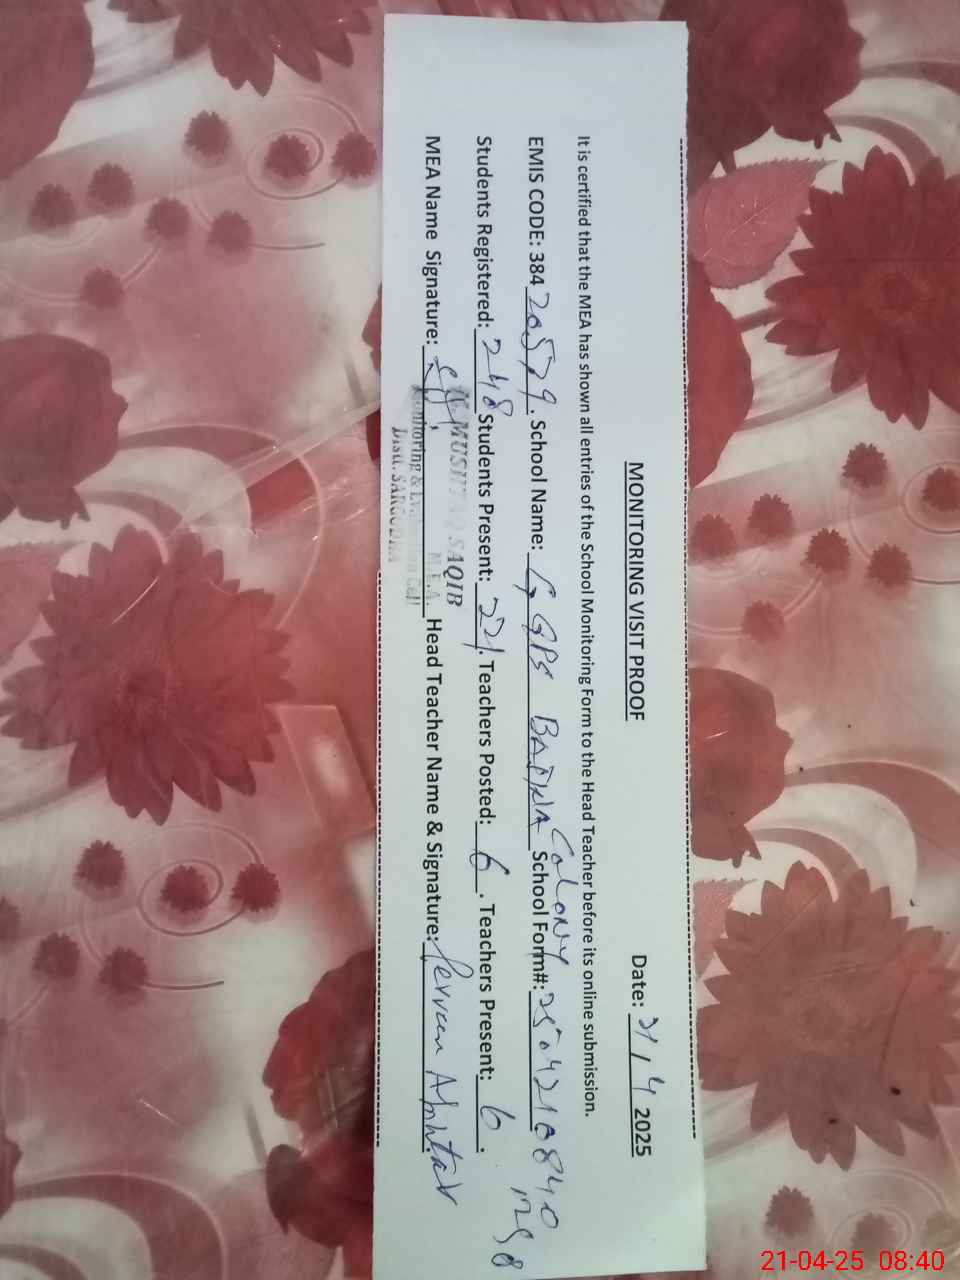 MONITORING VISIT PROOF
Date: 21/4 2025
It is certified that the MEA has shown all entries of the School Monitoring Form to the Head Teacher before its online submission.
EMIS CODE: 384 20579. School Name: GGPS Colony School Form#: 2504210840
1258
Students Registered: 248 Students Present: 221. Teachers Posted: 6. Teachers Present: 6.
SAQIB
M.E.A.
MEA Name Signature: Head Teacher Name & Signature: Perveen Akhtar
Monitoring & Evaluation Cell
Distt. SARGODHA
21-04-25 08:40